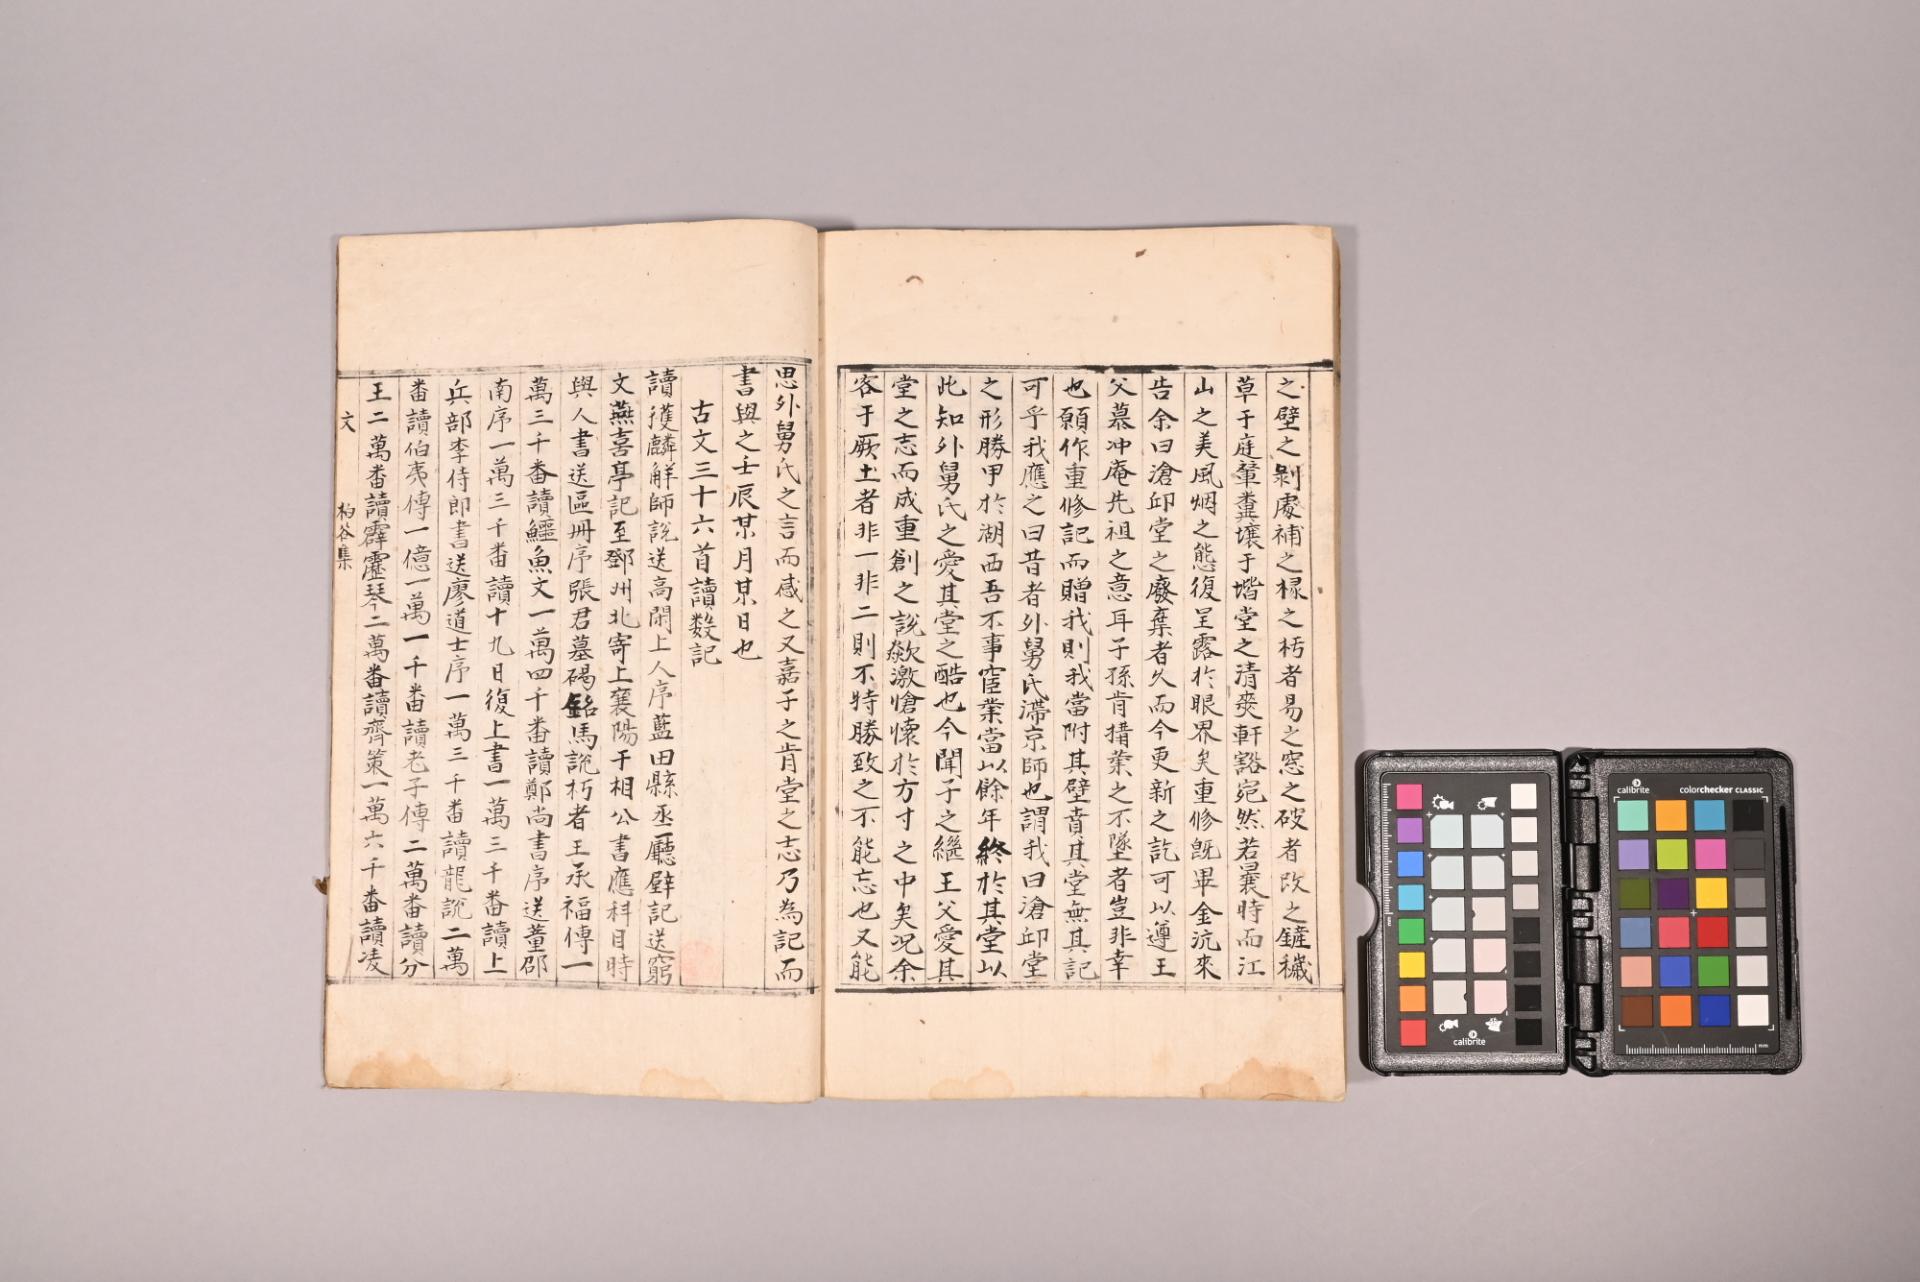 之壁之剝處補之椽之朽者易之窓之破者改之鏟穢
草于庭輦糞壤于堦堂之清爽軒豁宛然若曩時而江
山之美風烟之態復呈露於眼界矣重修旣畢金沆來
告余曰滄邱堂之廢棄者久而今更新之訖可以遵王
父慕冲庵先祖之意耳子孫肯搆業之不墜者豈非幸
也願作重修記而贈我則我當附其壁賁其堂無其記
可乎我應之曰昔者外舅氏滯京師也謂我曰滄邱堂
之形勝甲於湖西吾不事宦業當以餘年終於其堂以
此知外舅氏之愛其堂之酷也今聞子之繼王父愛其
堂之志而成重創之說欻激愴懷於方寸之中矣况余
客于厥土者非一非二則不特勝致之不能忘也又能
思外舅氏之言而感之又嘉子之肯堂之志乃為記而
書與之壬辰某月某日也
古文三十六首讀數記
讀獲麟解師說送高閑上人序藍田縣丞廳壁記送窮
文燕喜亭記至鄧州北寄上襄陽于相公書應科目時
與人書送區冊序張君墓碣銘馬說朽者王承福傳一
萬三千番讀鱷魚文一萬四千番讀鄭尚書序送董邵
南序一萬三千番讀十九日復上書一萬三千番讀上
兵部李侍郎書送廖道士序一萬三千番讀龍說二萬
番讀伯夷傳一億一萬一千番讀老子傳二萬番讀分
王二萬番讀霹靂琴二萬番讀齊策一萬六千番讀凌
文 柏谷集
calibrite
calibrite colorchecker CLASSIC
mm